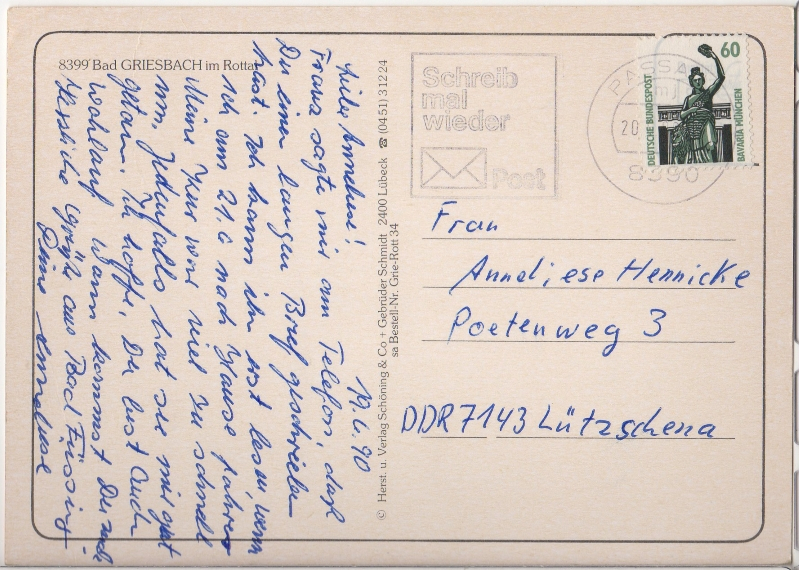 8399 Bad GRIESBACH im Rottal
19.6.90
Liebe Anneliese!
Franz sagte mir am Telefon, daß
Du einen langen Brief geschrieben
hast. Ich kann ihn erst lesen, wenn
ich am 21.6 nach Hause fahre
Meine Kur war viel zu schnell
um, Jedenfalls hat sie mir gut
getan. Ich hoffe, Du bist auch
wohlauf. Wann kommst Du
Herzliche Grüße aus Bad Füssing
Deine Anneliese
© Herst. u. Verlag Schöning & Co + Gebrüder Schmidt 2400 Lübeck ☎ (0451) 31224
sa Bestell-Nr. Grie-Rott 34
Schreib
mal
wieder
Post
PASSA
20.
8390
60
DEUTSCHE BUNDESPOST
BAVARIA MÜNCHEN
Frau
Anneliese Hennicke
Poetenweg 3
DDR 7143 Lützschena